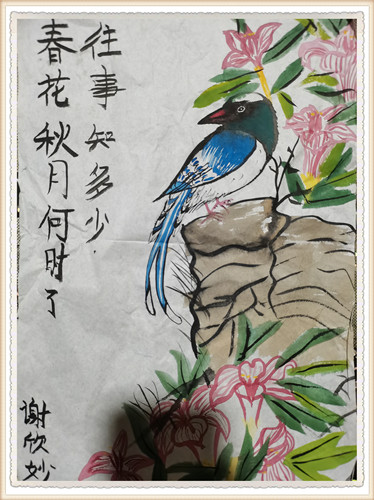 春花秋月何时了
往事知多少.
谢欣妙